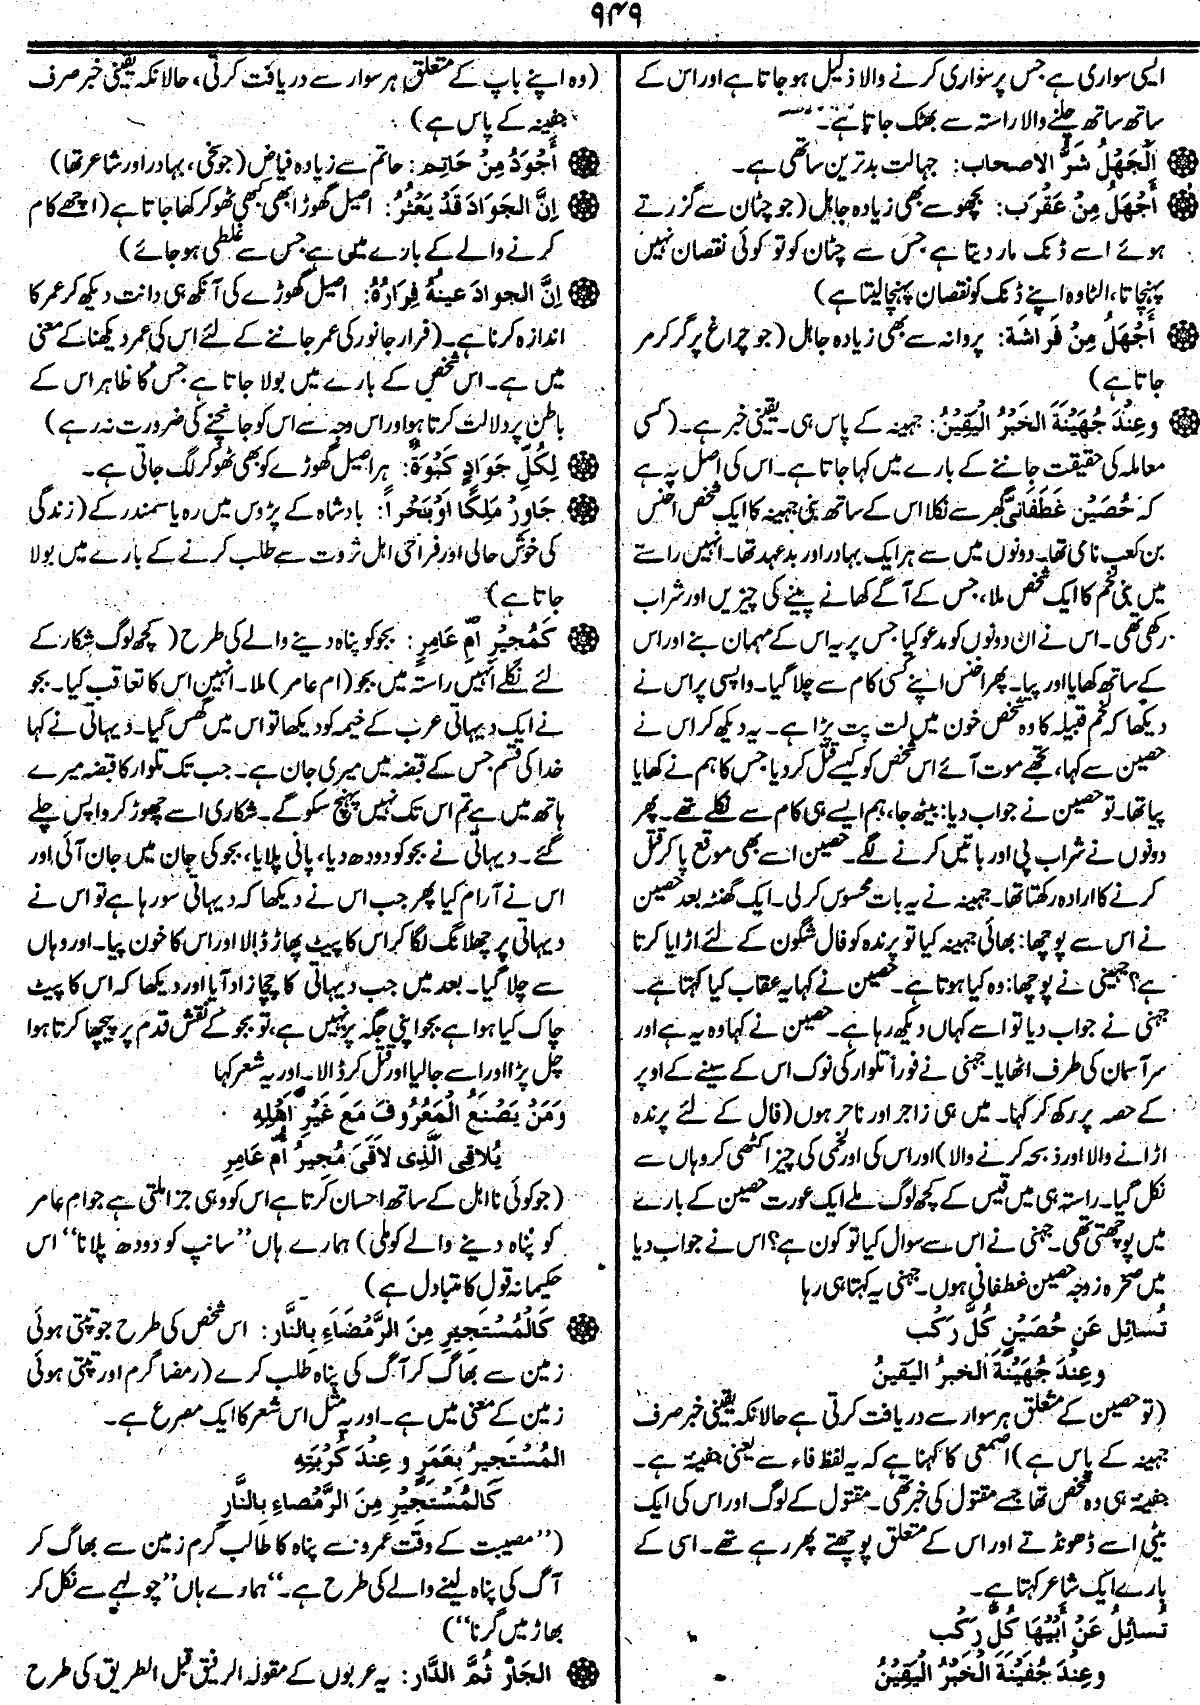 ۹۴۹
ایسی سواری ہے جس پر سواری کرنے والا ذلیل ہو جاتا ہے اور اس کے
ساتھ ساتھ چلنے والا راستہ سے بھٹک جاتا ہے۔
اَلْجَهْلُ شَرُّ الاصحاب: جہالت بدترین ساتھی ہے۔
أَجْهَلُ مِنْ عَقْرَب: بچھو سے بھی زیادہ جاہل (جو چٹان سے گزرتے
ہوئے اسے ڈنک مار دیتا ہے جس سے چٹان کو تو کوئی نقصان نہیں
پہنچاتا، الٹا وہ اپنے ڈنک کو نقصان پہنچا لیتا ہے)
أَجْهَلُ مِنْ فَرَاشَة: پروانہ سے بھی زیادہ جاہل (جو چراغ پر گر کر مر
جاتا ہے)
وعِنْدَ جُهَيْنَةَ الخَبْرُ اليَقِيْنُ: جہینہ کے پاس ہی۔ یقینی خبر ہے۔ (کسی
معاملہ کی حقیقت جاننے کے بارے میں کہا جاتا ہے۔ اس کی اصل یہ ہے
کہ حُصَیْن غَطَفَانی گھر سے نکلا اس کے ساتھ بنی جہینہ کا ایک شخص اخنس
بن کعب نامی تھا۔ دونوں میں سے ہر ایک بہادر اور بدعہد تھا۔ انہیں راستے
میں بنی لخم کا ایک شخص ملا، جس کے آگے کھانے پینے کی چیزیں اور شراب
رکھی تھی۔ اس نے ان دونوں کو مدعو کیا جس پر یہ اس کے مہمان بنے اور اس
کے ساتھ کھایا اور پیا۔ پھر اخنس اپنے کسی کام سے چلا گیا۔ واپسی پر اس نے
دیکھا کہ لخم قبیلہ کا وہ شخص خون میں لت پت پڑا ہے۔ یہ دیکھ کر اس نے
حصین سے کہا، تجھے موت آئے اس شخص کو کیسے قتل کر دیا جس کا ہم نے کھایا
پیا تھا۔ تو حصین نے جواب دیا: بیٹھ جا، ہم ایسے ہی کام سے نکلے تھے۔ پھر
دونوں نے شراب پی اور باتیں کرنے لگے۔ حصین اسے بھی موقع پا کر قتل
کرنے کا ارادہ رکھتا تھا۔ جہینہ نے یہ بات محسوس کر لی۔ ایک گھنٹہ بعد حصین
نے اس سے پوچھا: بھائی جہینہ کیا تو پرندہ کو فال شگون کے لئے اڑایا کرتا
ہے؟ جہینی نے پوچھا: وہ کیا ہوتا ہے۔ حصین نے کہا یہ عقاب کیا کہتا ہے۔
جہنی نے جواب دیا تو اسے کہاں دیکھ رہا ہے۔ حصین نے کہا وہ یہ ہے اور
سر آسمان کی طرف اٹھایا۔ جہنی نے فوراً تلوار کی نوک اس کے سینے کے اوپر
کے حصہ پر رکھ کر کہا۔ میں ہی زاجر اور ناحر ہوں (فال کے لئے پرندہ
اڑانے والا اور ذبحہ کرنے والا) اور اس کی اور لخمی کی چیز اکٹھی کر وہاں سے
نکل گیا۔ راستہ ہی میں قیس کے کچھ لوگ ملے ایک عورت حصین کے بارے
میں پوچھتی تھی۔ جہنی نے اس سے سوال کیا تو کون ہے؟ اس نے جواب دیا
میں صخرہ زوجہ حصین غطفانی ہوں۔ جہنی یہ کہتا ہی رہا
تُسائِل عَن حُصَيْنٍ كُلَّ رَكْب
وعِنْدَ جُهَيْنَةَ الخبرُ اليَقينُ
(تو حصین کے متعلق ہر سوار سے دریافت کرتی ہے حالانکہ یقینی خبر صرف
جہینہ کے پاس ہے) اصمعی کا کہنا ہے کہ یہ لفظ فاء سے یعنی جفینۃ ہے۔
جفینۃ ہی وہ شخص تھا جسے مقتول کی خبر تھی۔ مقتول کے لوگ اور اس کی ایک
بیٹی اسے ڈھونڈتے اور اس کے متعلق پوچھتے پھر رہے تھے۔ اسی کے
بارے ایک شاعر کہتا ہے۔
تُسائِلُ عَنْ أَبِيْهَا كُلَّ رَكْب
وعِنْدَ جُفَيْنَةَ الْخَبْرُ الْيَقِيْنُ
(وہ اپنے باپ کے متعلق ہر سوار سے دریافت کرتی، حالانکہ یقینی خبر صرف
جفینہ کے پاس ہے)
أَجْوَدُ مِنْ حَاتِم: حاتم سے زیادہ فیاض (جو سخی، بہادر اور شاعر تھا)
اِنَّ الجَوادَ قَدْ يَعْثُرُ: اصیل گھوڑا بھی کبھی ٹھوکر کھا جاتا ہے (اچھے کام
کرنے والے کے بارے میں ہے جس سے غلطی ہو جائے)
اِنَّ الجوادَ عينهُ فِرَارُهُ: اصیل گھوڑے کی آنکھ ہی دانت دیکھ کر عمر کا
اندازہ کرنا ہے۔ (فرار جانور کی عمر جاننے کے لئے اس کی عمر دیکھنا کے معنی
میں ہے۔ اس شخص کے بارے میں بولا جاتا ہے جس کا ظاہر اس کے
باطن پر دلالت کرتا ہو اور اس وجہ سے اس کو جانچنے کی ضرورت نہ رہے)
لِكُلِّ جَوَادٍ كَبْوَةٌ: ہر اصیل گھوڑے کو بھی ٹھوکر لگ جاتی ہے۔
جَاوِرْ مَلِكًا اَوْبَحْراً: بادشاہ کے پڑوس میں رہ یا سمندر کے (زندگی
کی خوش حالی اور فراخی اہل ثروت سے طلب کرنے کے بارے میں بولا
جاتا ہے)
كَمُجِيْرِ اُمِّ عَامِرٍ: بجو کو پناہ دینے والے کی طرح (کچھ لوگ شکار کے
لئے نکلے انہیں راستہ میں بجو (ام عامر) ملا۔ انہیں اس کا تعاقب کیا۔ بجو
نے ایک دیہاتی عرب کے خیمہ کو دیکھا تو اس میں گھس گیا۔ دیہاتی نے کہا
خدا کی قسم جس کے قبضہ میں میری جان ہے۔ جب تک تلوار کا قبضہ میرے
ہاتھ میں ہے تم اس تک نہیں پہنچ سکو گے۔ شکاری اسے چھوڑ کر واپس چلے
گئے۔ دیہاتی نے بجو کو دودھ دیا، پانی پلایا، بجو کی جان میں جان آئی اور
اس نے آرام کیا پھر جب اس نے دیکھا کہ دیہاتی سو رہا ہے تو اس نے
دیہاتی پر چھلانگ لگا کر اس کا پیٹ پھاڑ ڈالا اور اس کا خون پیا۔ اور وہاں
سے چلا گیا۔ بعد میں جب دیہاتی کا چچا زاد آیا اور دیکھا کہ اس کا پیٹ
چاک کیا ہوا ہے بجو اپنی جگہ پر نہیں ہے، تو بجو کے نقش قدم پر پیچھا کرتا ہوا
چل پڑا اور اسے جا لیا اور قتل کر ڈالا۔ اور یہ شعر کہا
وَمَنْ يَصْنَعِ الْمَعْرُوفَ مَعَ غَيْرِ اَهْلِهِ
يُلاقِي الَّذِي لَاقَى مُجِيرُ اُمِّ عَامِرِ
(جو کوئی نااہل کے ساتھ احسان کرتا ہے اس کو وہی جزا ملتی ہے جو ام عامر
کو پناہ دینے والے کو ملی) ہمارے ہاں "سانپ کو دودھ پلانا" اس
حکیمانہ قول کا متبادل ہے)
كَالْمُسْتَجِيْرِ مِنَ الرَّمْضَاءِ بِالنَّار: اس شخص کی طرح جو تپتی ہوئی
زمین سے بھاگ کر آگ کی پناہ طلب کرے (رمضا گرم اور تپتی ہوئی
زمین کے معنی میں ہے۔ اور یہ مثل اس شعر کا ایک مصرع ہے۔
المُسْتَجِيرُ بِعَمَرٍ و عِنْدَ كُرْبَتِهِ
كَالمُسْتَجِيْرِ مِنَ الرَّمْضاءِ بِالنَّارِ
("مصیبت کے وقت عمرو نے پناہ کا طالب گرم زمین سے بھاگ کر
آگ کی پناہ لینے والے کی طرح ہے۔" ہمارے ہاں "چولہے سے نکل کر
بھاڑ میں گرنا")
الجَارُ ثُمَّ الدَّار: یہ عربوں کے مقولہ الرفیق قبل الطریق کی طرح